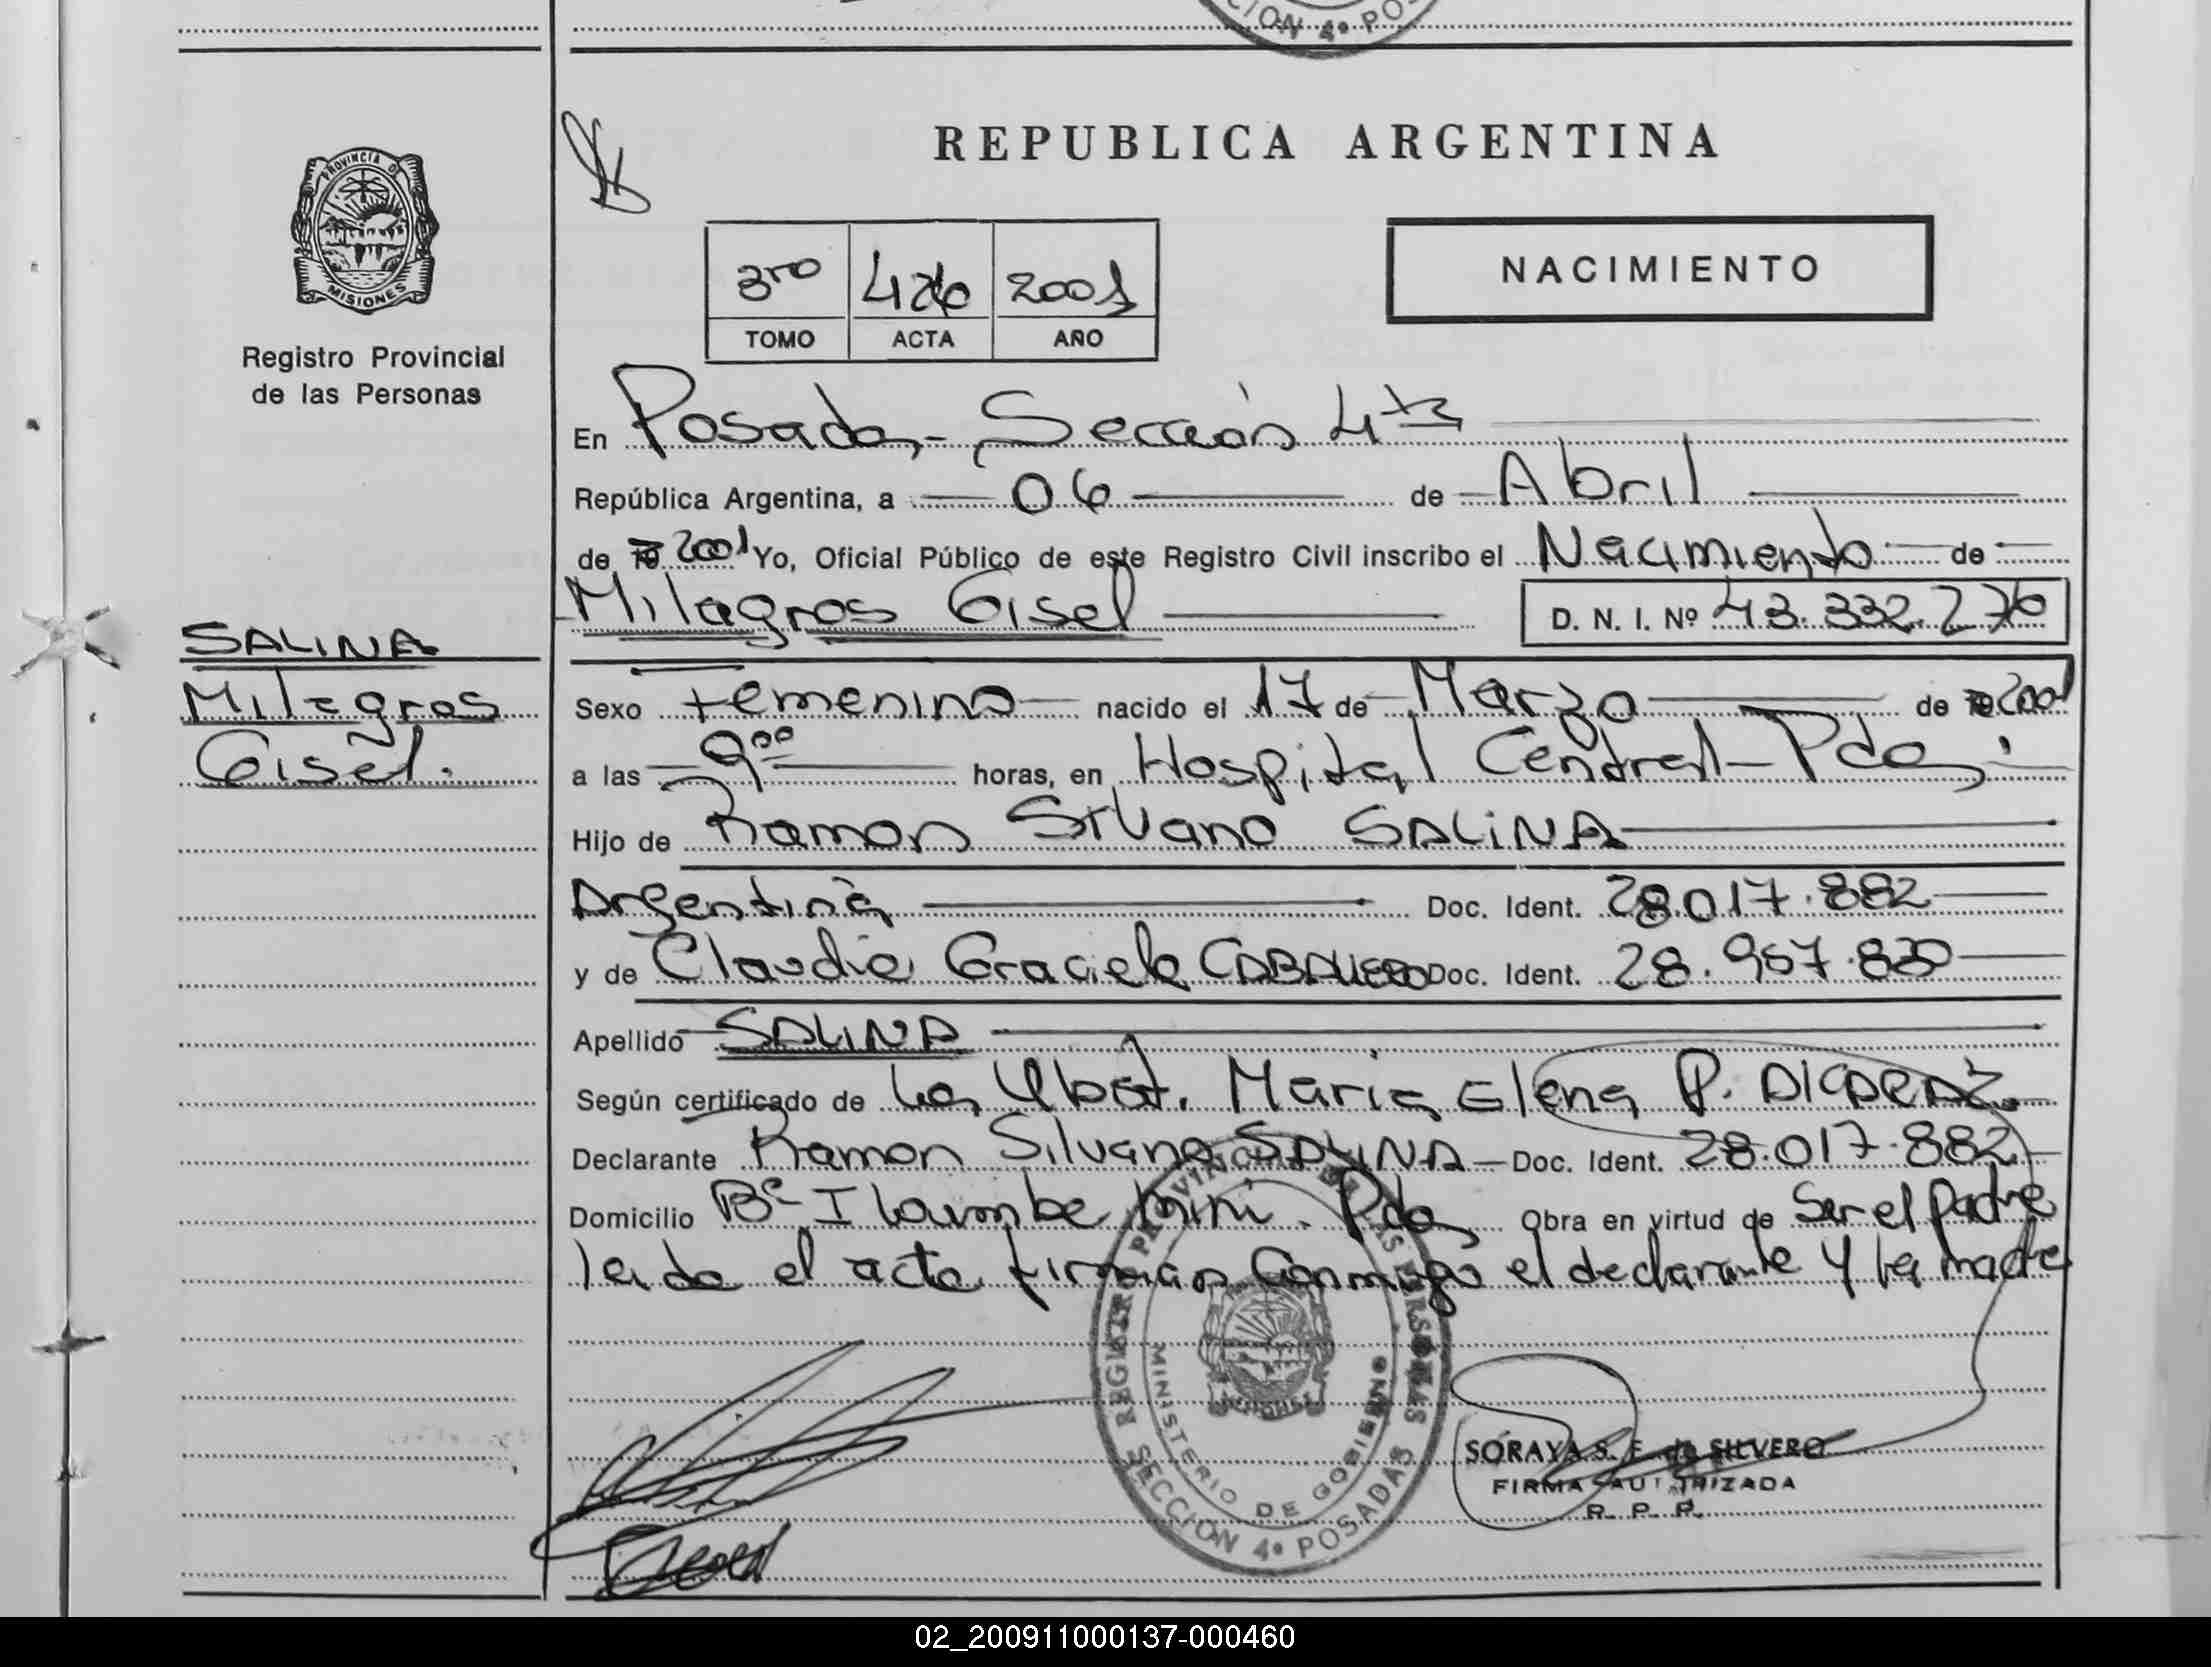 CION 4ª POS
PROVINCIA D
MISIONES
Registro Provincial
de las Personas
REPUBLICA ARGENTINA
3ro 426 2001
TOMO ACTA AÑO
NACIMIENTO
En Posadas, Sección 4ta
República Argentina, a 06 de Abril
de 19 2001 Yo, Oficial Público de este Registro Civil inscribo el Nacimiento de
Milagros Gisel D. N. I. Nº 43.332.276
SALINA
Milagros
Gisel.
Sexo Femenino nacido el 17 de Marzo de 19 2001
a las 9ºº horas, en Hospital Central - Pdas
Hijo de Ramon Silvano SALINA
Argentina Doc. Ident. 28.017.882
y de Claudia Graciela CABALLERO Doc. Ident. 28.957.820
Apellido SALINA
Según certificado de La Obst. Maria Elena P.
Declarante Ramon Silvano SALINA Doc. Ident. 28.017.882
Domicilio Bº mini. Pdas Obra en virtud de Ser el padre
leida el acta firman Conmigo el declarante y la madre
REGISTRO PROVINCIAL DE LAS PERSONAS
MINISTERIO DE GOBIERNO
SECCION 4ª POSADAS
SORAYA S. F. de SILVERO
FIRMA AUTORIZADA
R. P. P.
02_200911000137-000460